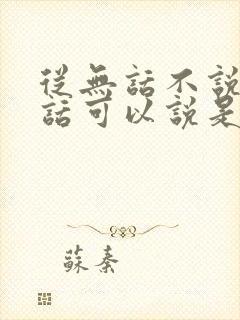 從無話不說
話可以說是
蘇秦